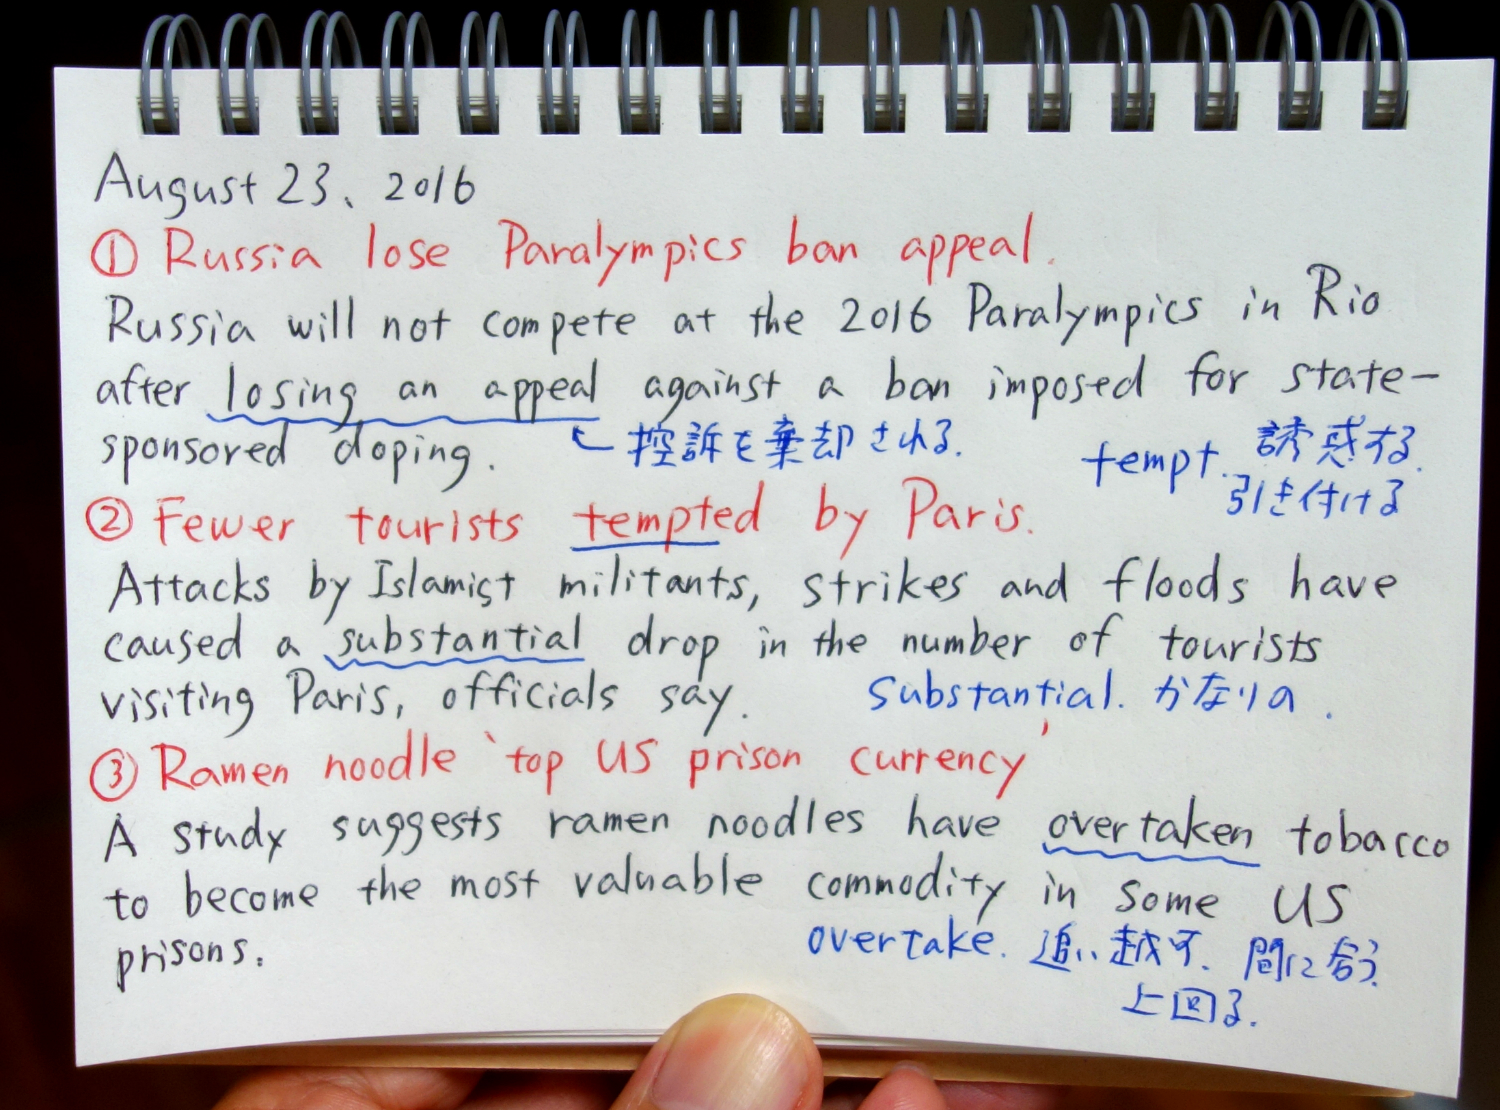 August 23、2016
① Russia lose Paralympics ban appeal.
Russia will not compete at the 2016 Paralympics in Rio
after losing an appeal against a ban imposed for state-
sponsored doping.
控訴を棄却される.
tempt. 誘惑する.
引き付ける
② Fewer tourists tempted by Paris.
Attacks by Islamist militants, strikes and floods have
caused a substantial drop in the number of tourists
visiting Paris, officials say.
substantial. かなりの.
③ Ramen noodle 'top US prison currency'
A study suggests ramen noodles have overtaken tobacco
to become the most valuable commodity in some US
prisons.
overtake. 追い越す. 間に合う.
上回る.